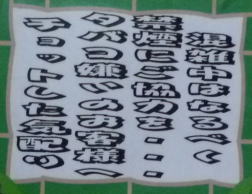 混雑中はなるべく
禁煙にご協力を・・・
タバコ嫌いのお客様へ
チョットした気配り